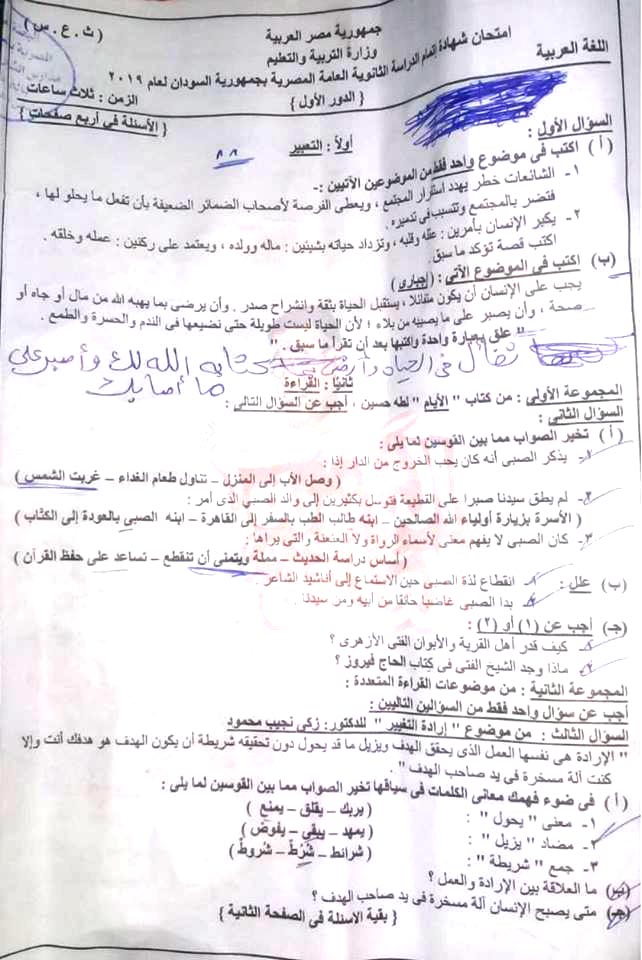 جمهورية مصر العربية
( ث . ع . س )
وزارة التربية والتعليم
اللغة العربية
امتحان شهادة إتمام الدراسة الثانوية العامة المصرية بجمهورية السودان لعام ٢٠١٩
{ الدور الأول }
الزمن : ثلاث ساعات
{ الأسئلة فى أربع صفحات }
السؤال الأول :
أولاً : التعبير
( أ ) اكتب فى موضوع واحد فقط من الموضوعين الآتيين :-
١- الشائعات خطر يهدد استقرار المجتمع ، ويعطى الفرصة لأصحاب الضمائر الضعيفة بأن تفعل ما يحلو لها ،
فتضر بالمجتمع وتتسبب فى تدميره .
٢- يكبر الإنسان بأمرين : عقله وقلبه ، وتزداد حياته بشيئين : ماله وولده ، ويعتمد على ركنين : عمله وخلقه .
اكتب قصة تؤكد ما سبق.
(ب) اكتب فى الموضوع الآتى : (إجبارى)
يجب على الإنسان أن يكون متفائلا ، يستقبل الحياة بثقة وانشراح صدر . وأن يرضى بما يهبه الله من مال أو جاه أو
صحة ، وأن يصبر على ما يصيبه من بلاء ؛ لأن الحياة ليست طويلة حتى نضيعها فى الندم والحسرة والطمع .
" علق بعبارة واحدة واكتبها بعد أن تقرأ ما سبق . "
فى الحياه الله لك وأصبر على
ما أصابك
ثانيًا : القراءة
المجموعة الأولى : من كتاب " الأيام " لطه حسين ، أجب عن السؤال التالى :
السؤال الثانى :
( أ ) تخير الصواب مما بين القوسين لما يلى :
١- يذكر الصبى أنه كان يحب الخروج من الدار إذا :
( وصل الأب إلى المنزل – تناول طعام الغداء – غربت الشمس )
٢- لم يطق سيدنا صبرا على القطيعة فتوسل بكثيرين إلى والد الصبي الذى أمر :
( الأسرة بزيارة أولياء الله الصالحين – ابنه طالب الطب بالسفر إلى القاهرة – ابنه الصبى بالعودة إلى الكتاب )
٣- كان الصبى لا يفهم معنى لأسماء الرواة ولا العنعنة والتى يراها :
( أساس دراسة الحديث – مملة ويتمنى أن تنقطع – تساعد على حفظ القرآن )
(ب) علل : ١- انقطاع لذة الصبى حين الاستماع إلى أناشيد الشاعر .
٢- بدا الصبى غاضبا حانقا من أبيه ومن سيدنا .
(جـ) أجب عن (١) أو (٢) :
١- كيف قدر أهل القرية والأبوان الفتى الأزهرى ؟
٢- ماذا وجد الشيخ الفتى فى كتاب الحاج فيروز ؟
المجموعة الثانية : من موضوعات القراءة المتعددة :
أجب عن سؤال واحد فقط من السؤالين التاليين :
السؤال الثالث : من موضوع " إرادة التغيير " للدكتور: زكى نجيب محمود
" الإرادة هى نفسها العمل الذى يحقق الهدف ويزيل ما قد يحول دون تحقيقه شريطة أن يكون الهدف هو هدفك أنت وإلا
كنت آلة مسخرة فى يد صاحب الهدف " .
( أ ) فى ضوء فهمك معانى الكلمات فى سياقها تخير الصواب مما بين القوسين لما يلى :
١- معنى " يحول " : ( يربك – يقلق – يمنع )
٢- مضاد " يزيل " : ( يمهد – يبقى – يفوض )
٣- جمع " شريطة " : ( شرائط – شُرُط – شروط )
(ب) ما العلاقة بين الإرادة والعمل ؟
(جـ) متى يصبح الإنسان آلة مسخرة فى يد صاحب الهدف ؟
{ بقية الأسئلة فى الصفحة الثانية }